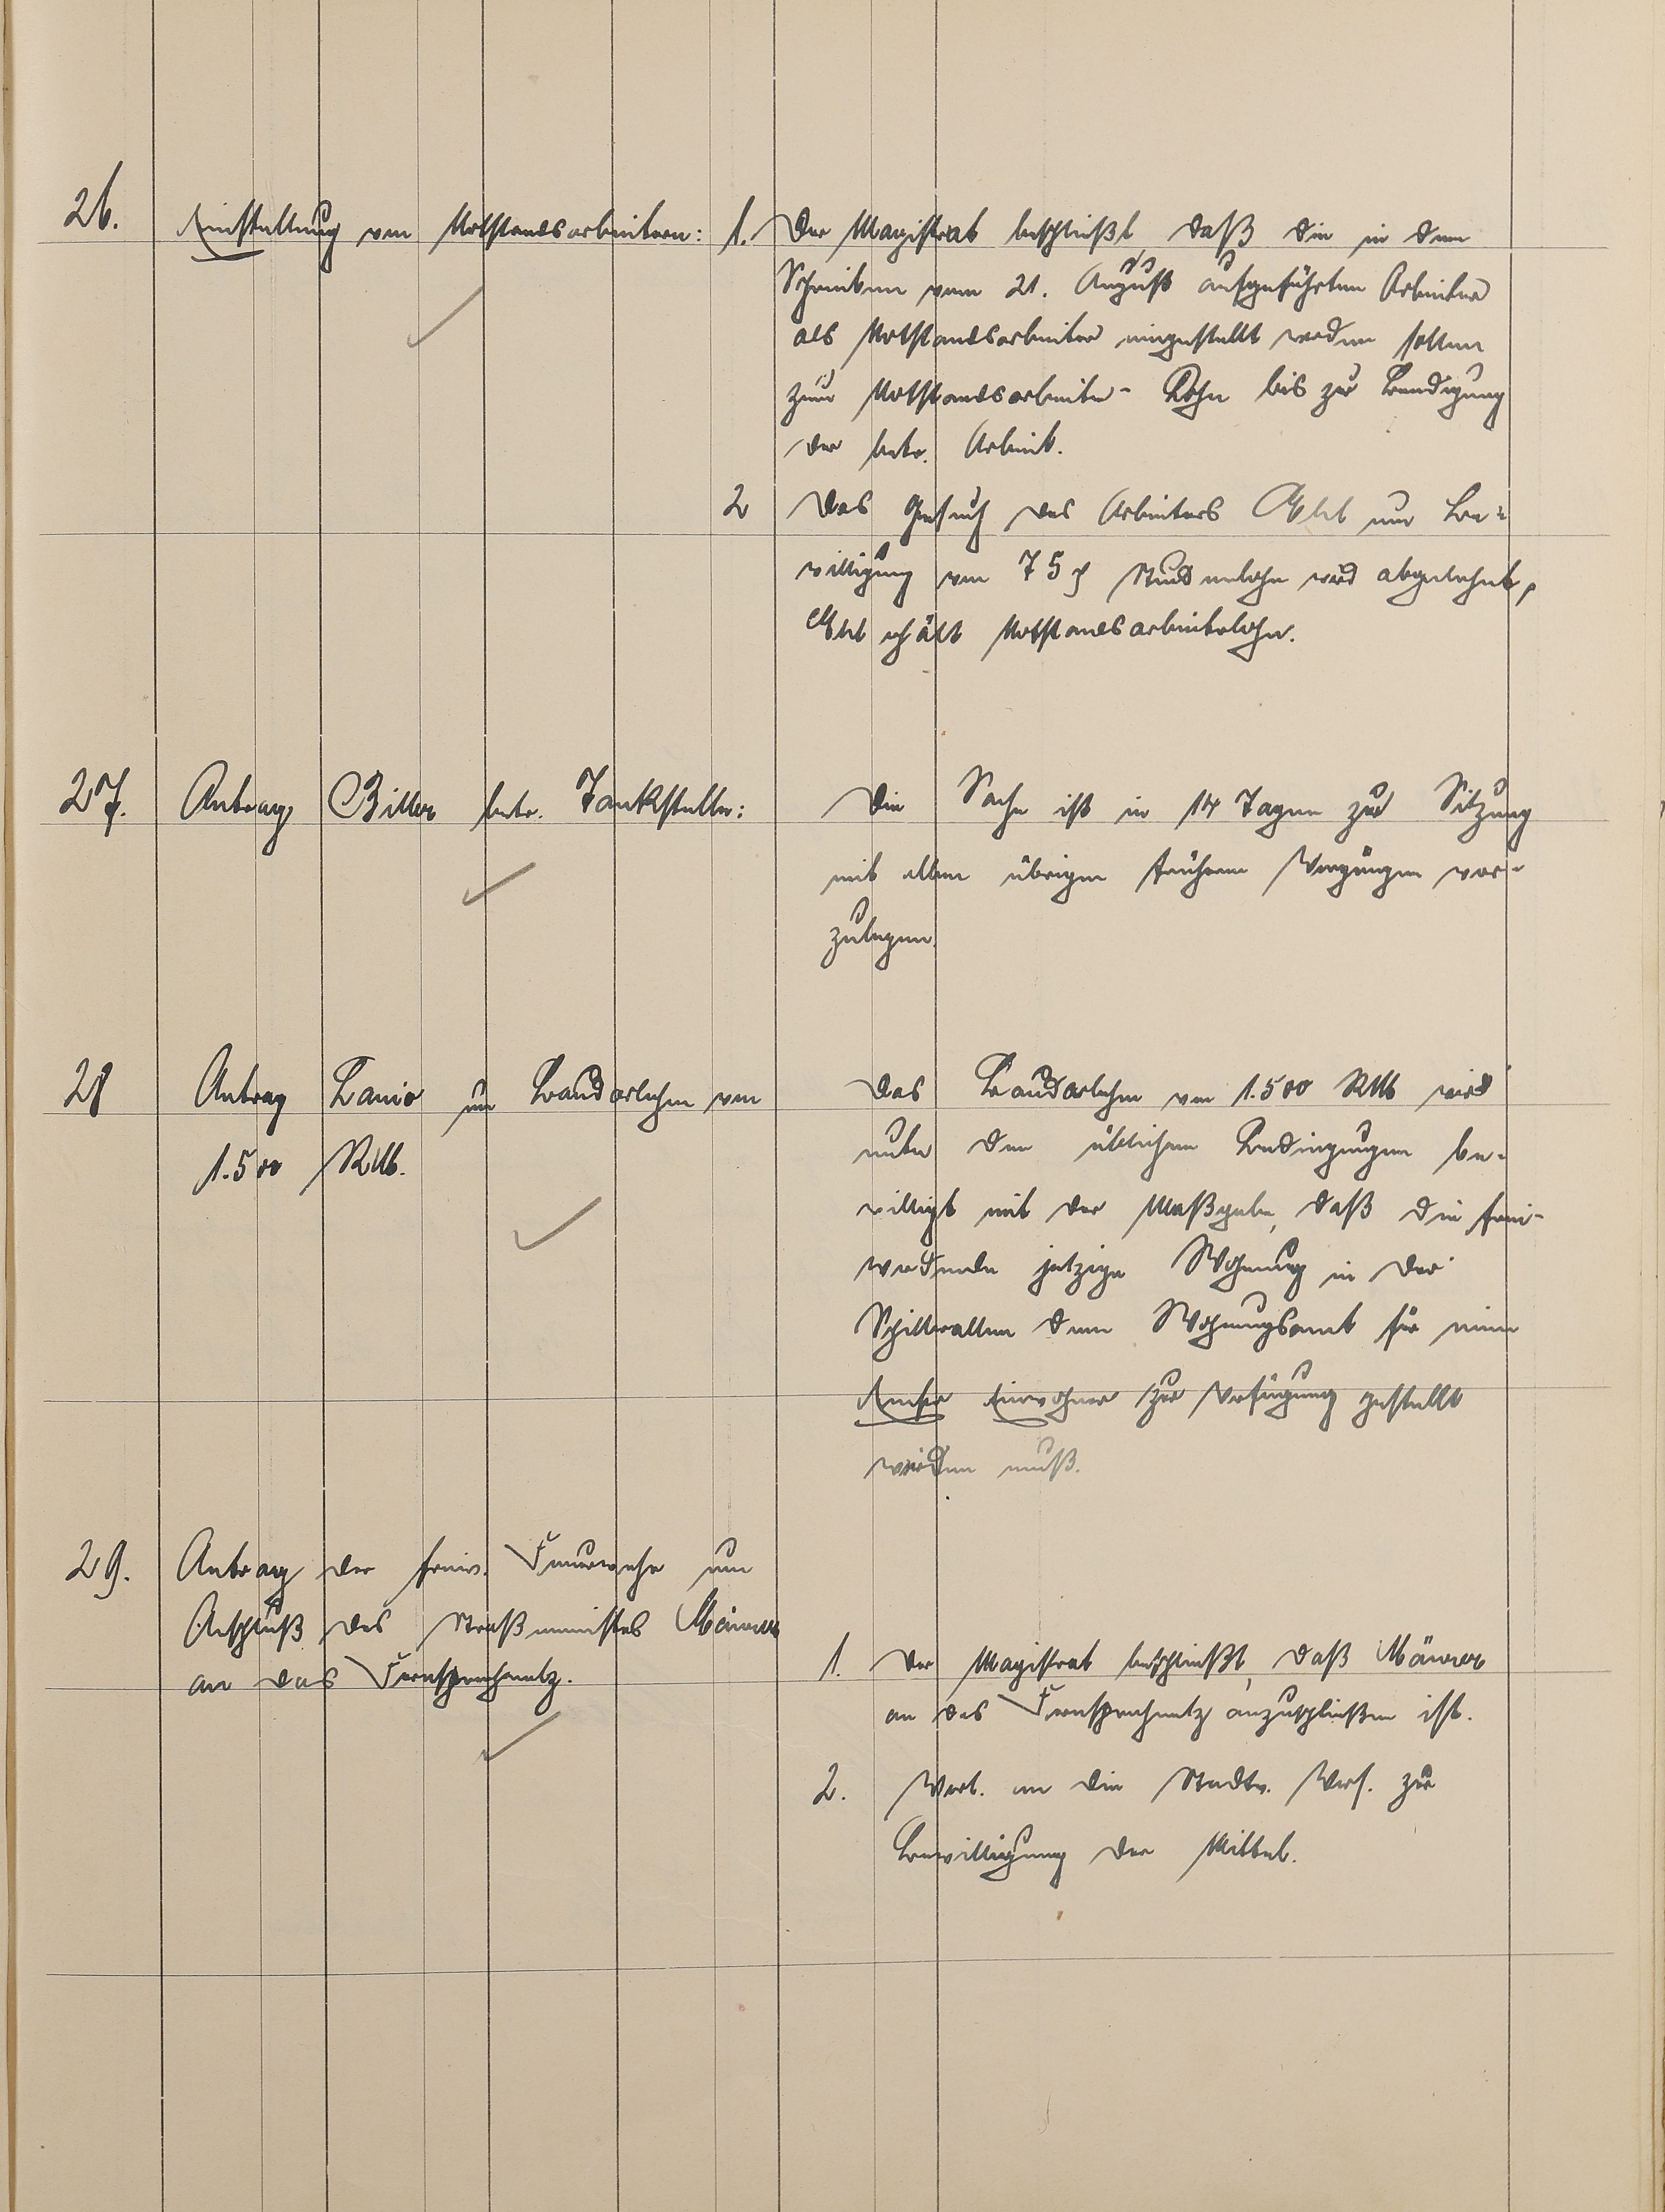 26. Einstellung von Notstandsarbeitern: 1. Der Magistrat beschließt, daß die in dem
Schreiben vom 21. August aufgeführten Arbeiter
als Notstandsarbeiter eingestellt werden sollen
zum Notstandsarbeiter-Lohn bis zur Beendigung
der betr. Arbeit.
2 Das Gesuch des Arbeiters um Be-
willigung von 75 Stundenlohn wird abgelehnt,
erhält Notstandsarbeiterlohn.
27. Antrag Biller betr. Tankstelle: Die Sache ist in 14 Tagen zur Sitzung
mit allen übrigen früheren Vorgängen vor-
zulegen.
28 Antrag um Baudarlehen von Das Baudarlehen von 1.500 RM wird
1.500 RM. unter den üblichen Bedingungen be-
willigt mit der Maßgabe, daß die frei-
werdende jetzige Wohnung in der
dem Wohnungsamt für einen
Einwohner zur Verfügung gestellt
werden muß.
29. Antrag der freiw. Feuerwehr um
Anschluß des Maurer
an das Fernsprechnetz. 1. Der Magistrat beschließt, daß Maurer
an das Fernsprechnetz anzuschließen ist.
2. Vorl. an die Stadtv. Vers. zur
Bewilligung der Mittel.